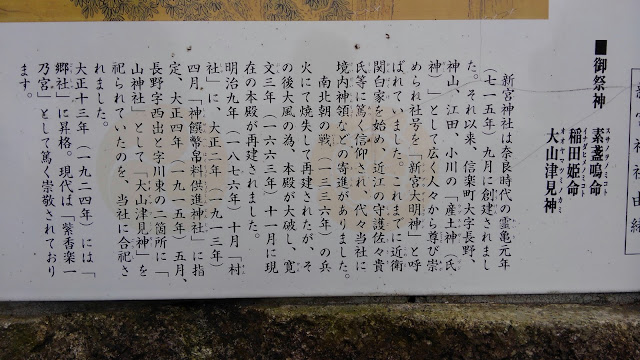 新宮神社由緒
■御祭神 素盞鳴命
スサノヲノミコト
稲田姫命
イナダヒメノミコト
大山津見神
オオヤマツミノカミ
新宮神社は奈良時代の霊亀元年
（七一五年）九月に創建されまし
た。それ以来、信楽町大字長野、
神山、江田、小川の「産土神（氏
神）」として広く人々から尊び崇
められ社号を「新宮大明神」と呼
ばれていました。これまでに近衛
関白家を始め、近江の守護佐々貴
氏等に篤く信仰され、代々当社に
境内神領などの寄進がありました。
南北朝の戦（一三三六年）の兵
火にて焼失して再建されたが、そ
の後大風の為、本殿が大破し、寛
文三年（一六六三年）十一月に現
在の本殿が再建されました。
明治九年（一八七六年）十月「村
社」に、大正二年（一九一三年）
四月「神饌幣帛料供進神社」に指
定、大正四年（一九一五年）五月、
長野字西出と字川東の二箇所に「
山神社」として「大山津見神」を
祀られていたのを、当社に合祀さ
れました。
大正十三年（一九二四年）には「
郷社」に昇格。現代は「紫香楽一
乃宮」として篤く崇敬されており
ます。